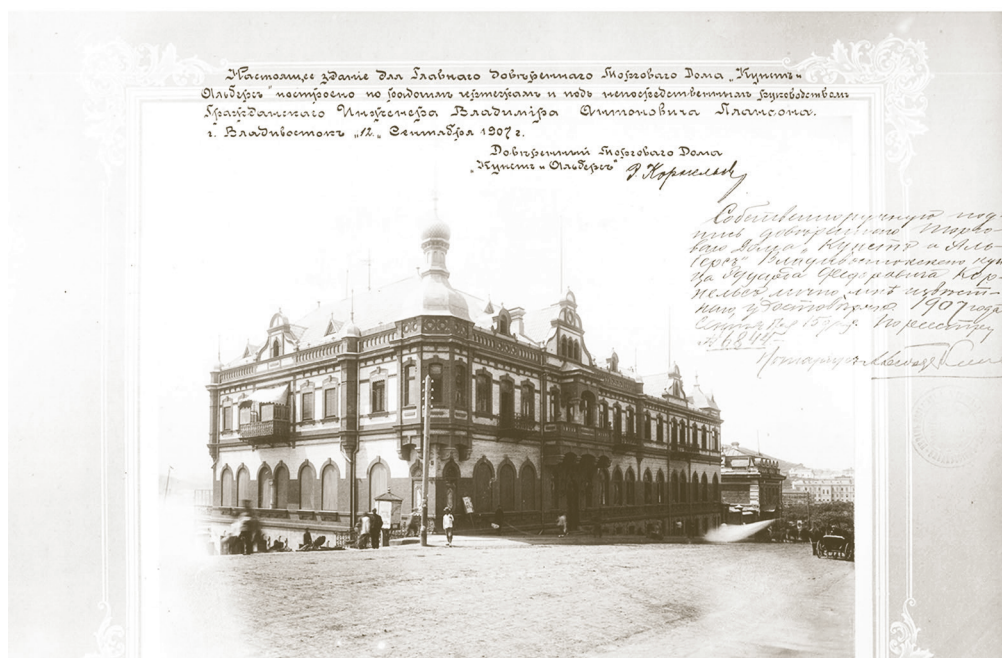 Настоящее зданіе для Главнаго Довѣреннаго Торговаго Дома „Кунстъ и
Альберсъ" построено по                 и подъ непосредственнымъ руководствомъ
Гражданскаго Инженера Владиміра Антоновича Плансона.
г. Владивостокъ „12„ Сентября 1907 г.
Довѣренный Торговаго Дома
„Кунстъ и Альберсъ"
Собственноручную под
пись довѣреннаго Торго-
ваго Дома „Кунстъ и Аль-
берсъ" Владивостокскаго куп
ца                 Федоровича Кор-
нельса лично мнѣ извѣст-
наго, удостовѣряю 1907 года
Сентября 15 дня. По реестру
№ 6844-
Нотаріусъ